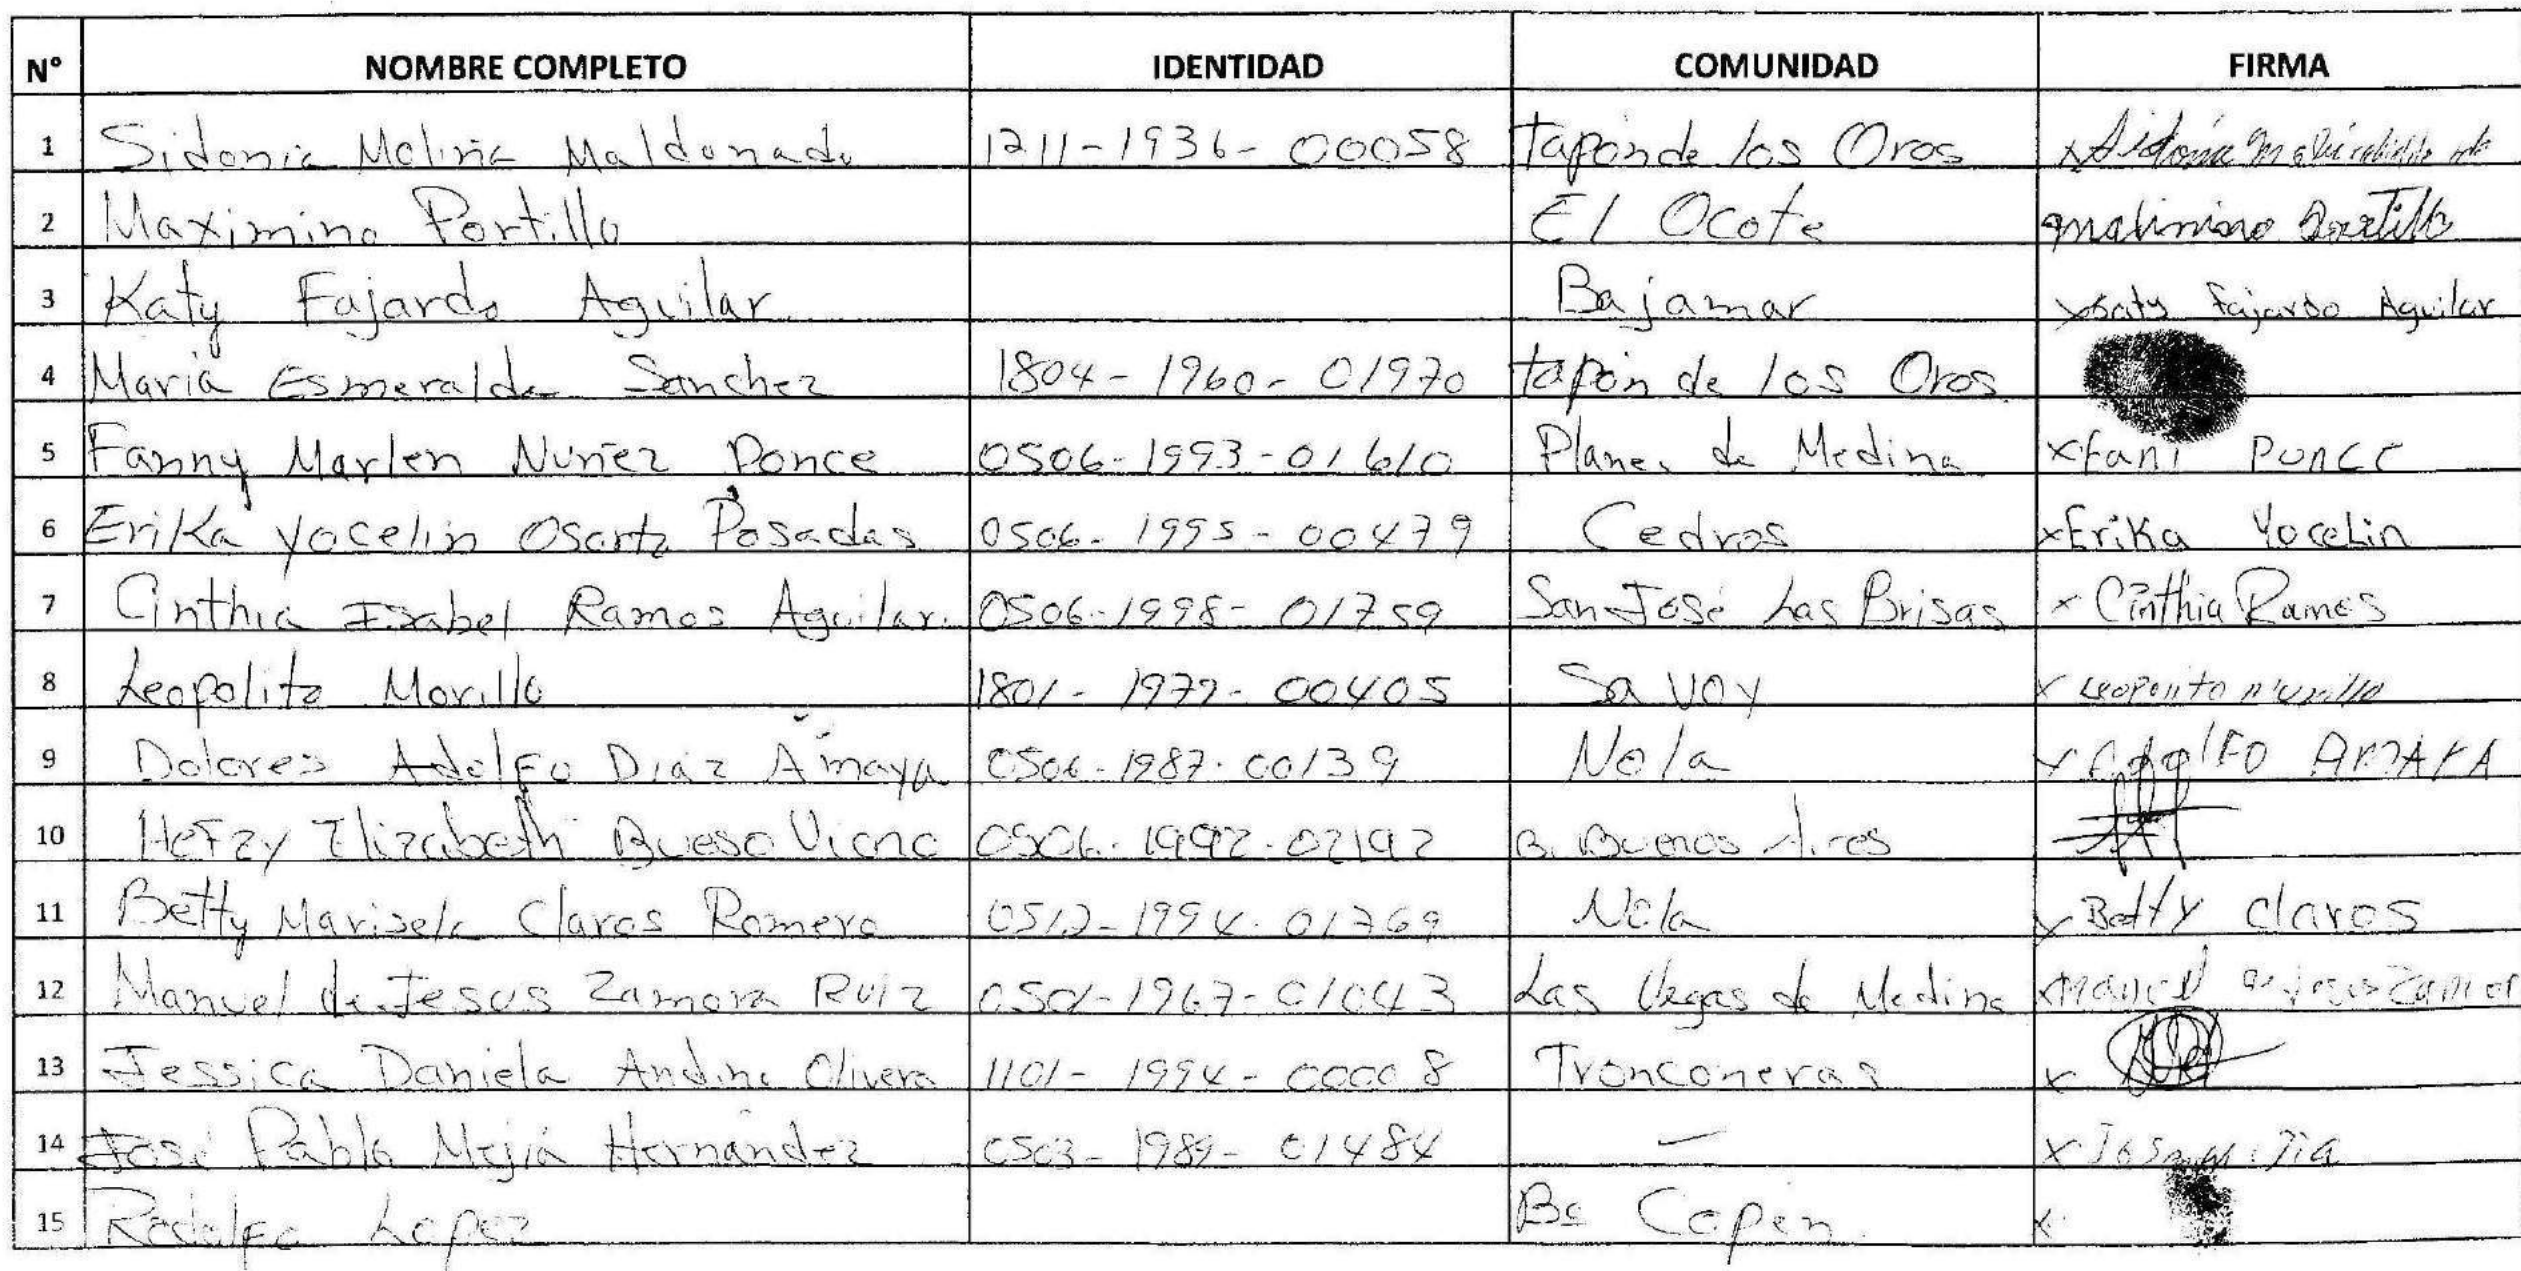 N° NOMBRE COMPLETO IDENTIDAD COMUNIDAD FIRMA
1 Sidonia Molina Maldonado 1211-1936-00058 Tapon de los Oros Sidonia
2 Maximino Portillo El Ocote Portillo
3 Katy Fajardo Aguilar Bajamar x Katy Fajardo Aguilar
4 Maria Esmeralda Sanchez 1804-1960-01970 tapon de los Oros
5 Fanny Marlen Nuñez Ponce 0506-1993-01610 Planes de Medina x fani Ponce
6 Erika Yocelin Osorto Posadas 0506-1995-00479 Cedros x Erika Yocelin
7 Cinthia Isabel Ramos Aguilar 0506-1998-01759 San José Las Brisas x Cinthia Ramos
8 Leopolito Morillo 1801-1977-00405 Savoy x
9 Dolores Adolfo Diaz Amaya 0506-1987-00139 Nola x Adolfo AMAYA
10 Hefzy Elizabeth Bueso Viana 0506-1992-02192 B. Buenos Aires
11 Betty Marisela Claros Romero 0512-1994-01769 Nola x Betty claros
12 Manuel de Jesus Zamora Ruiz 0501-1967-01043 Las Vegas de Medina x Manuel de Jesus
13 Jessica Daniela Andino Olivera 1101-1994-00008 Tronconeras x
14 José Pablo Mejía Hernández 0503-1989-01484 — x
15 Rodolfo Lopez Bo Copen x